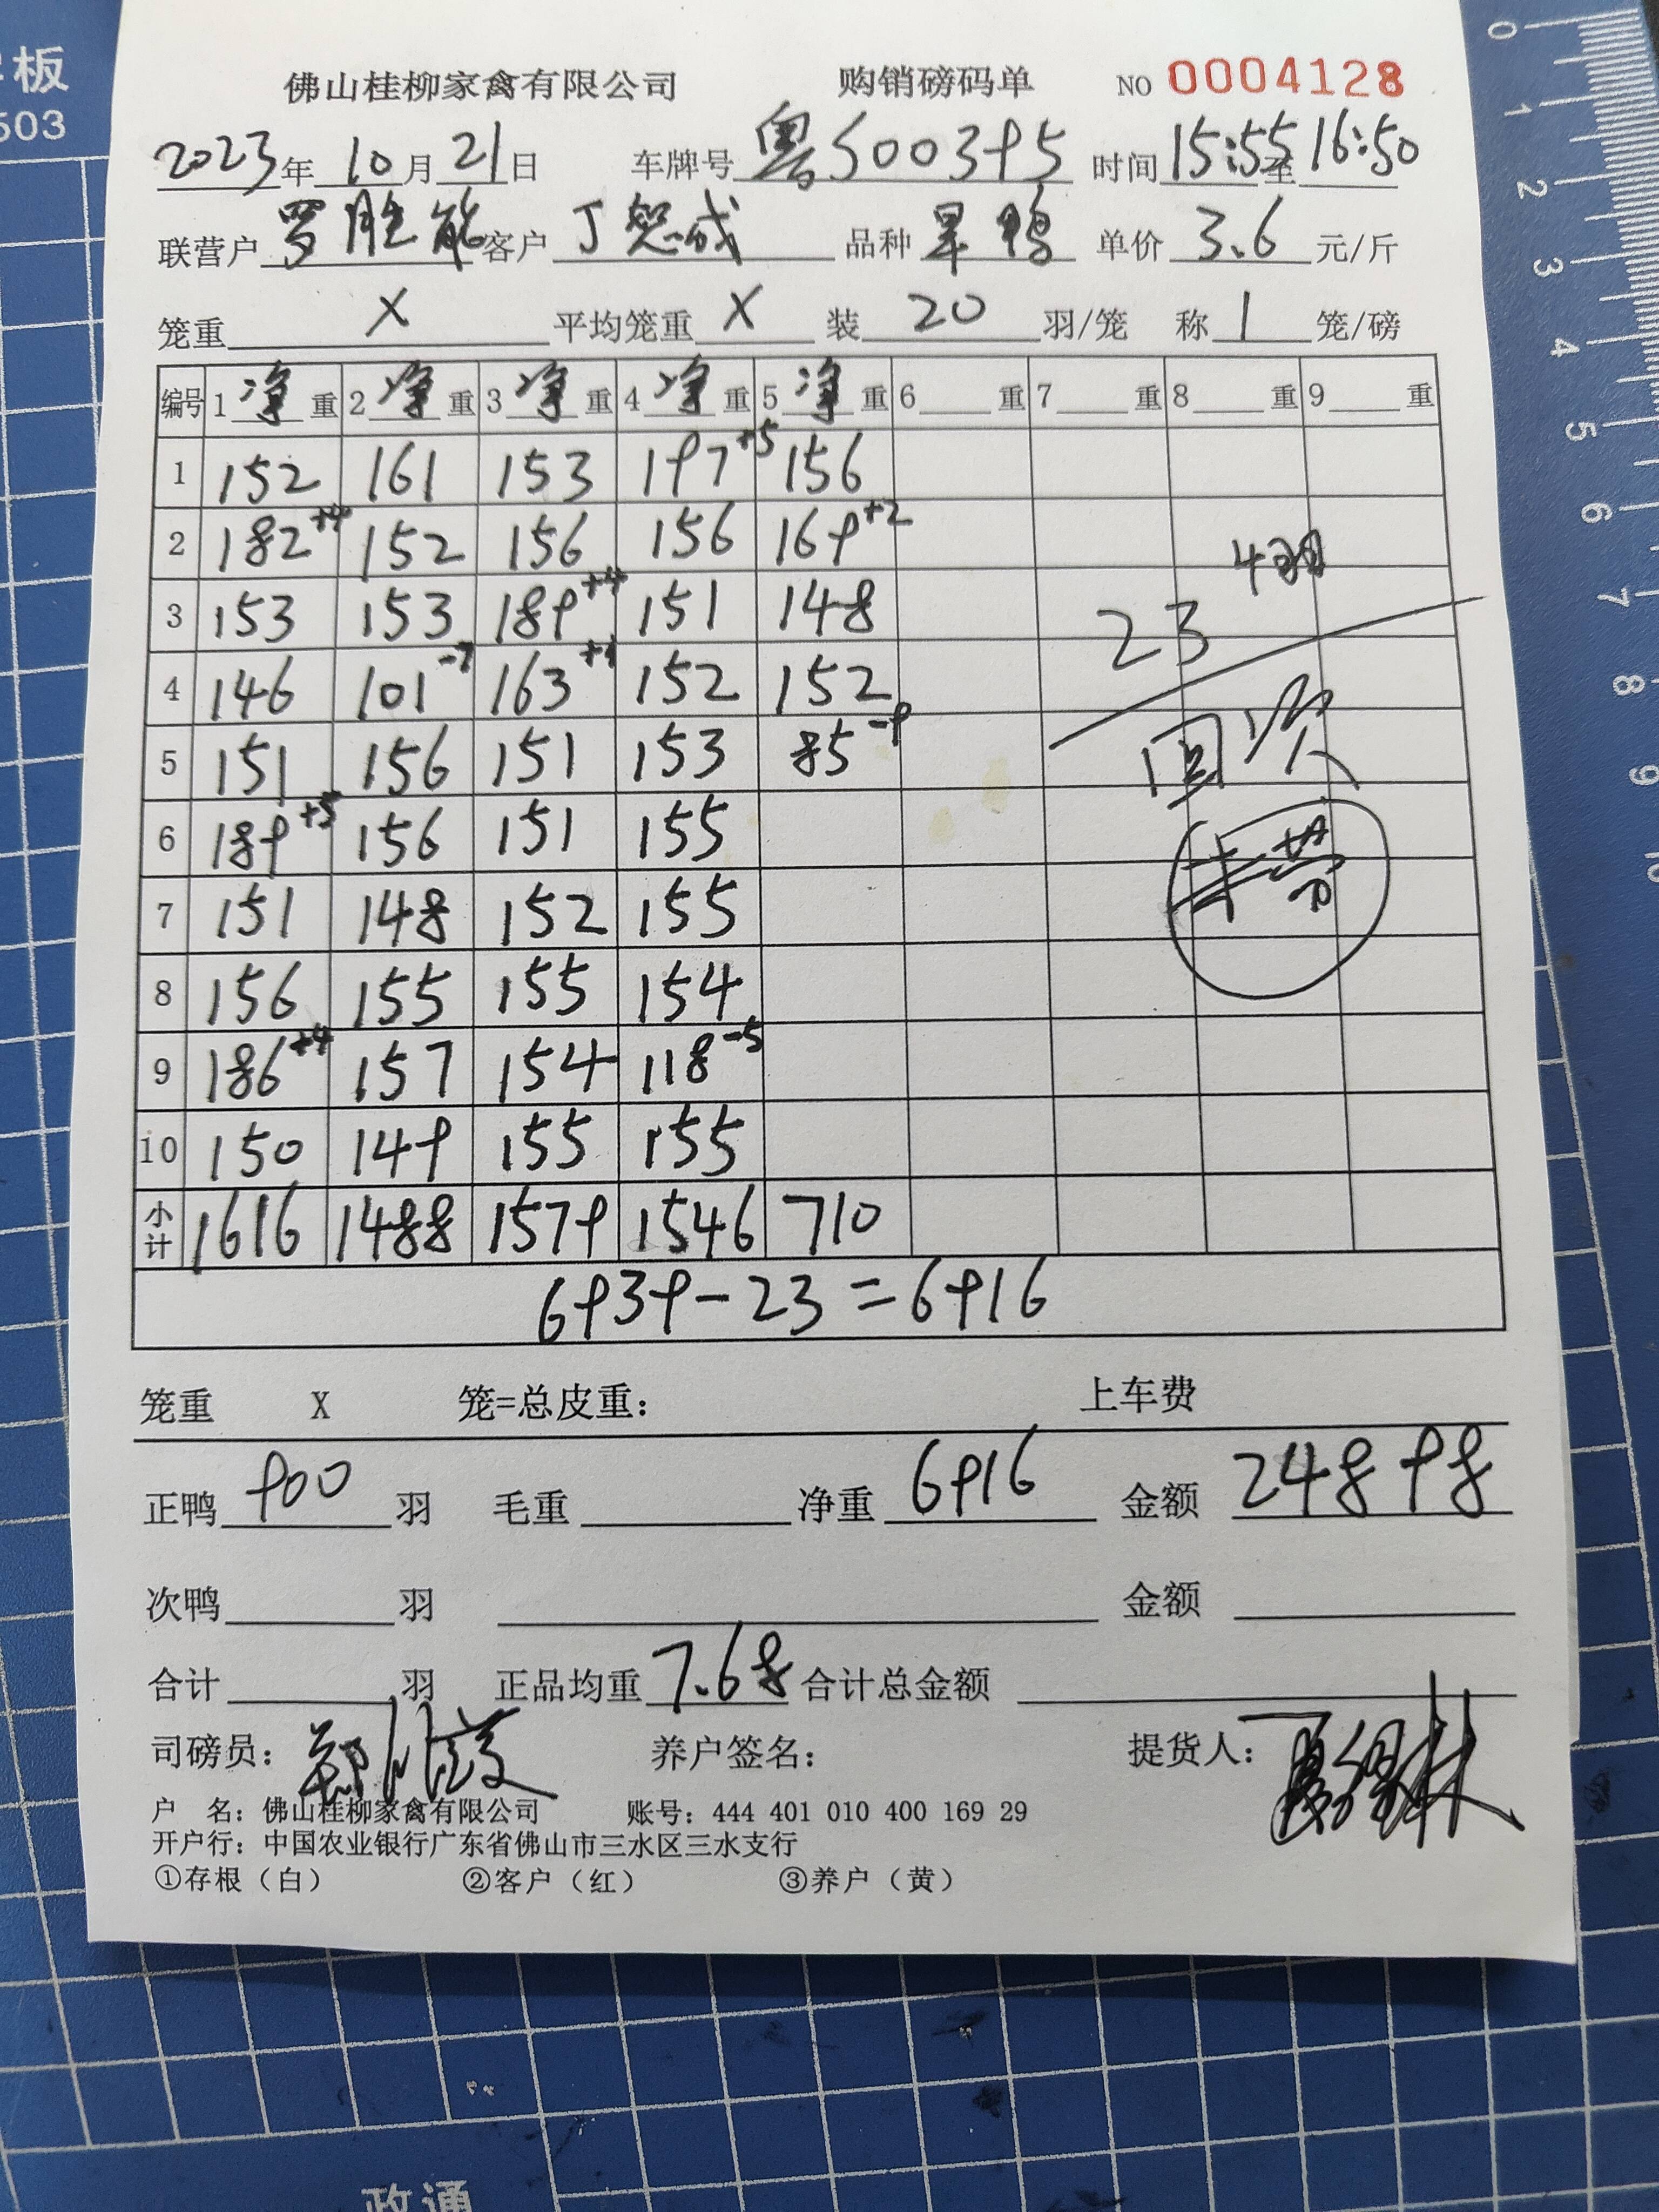 板
503
佛山桂柳家禽有限公司 购销磅码单 NO 0004128
2023年10月21日 车牌号 粤S00395 时间 15:55至16:50
联营户 罗胜能 客户 丁恕成 品种 旱鸭 单价 3.6 元/斤
笼重 X 平均笼重 X 装 20 羽/笼 称 1 笼/磅
编号 1 净 重 2 净 重 3 净 重 4 净 重 5 净 重 6 重 7 重 8 重 9 重
1 152 161 153 197+5 156
2 182+4 152 156 156 169+2
3 153 153 189+4 151 148
4 146 101-7 163+1 152 152
5 151 156 151 153 85-9
6 189+5 156 151 155
7 151 148 152 155
8 156 155 155 154
9 186+4 157 154 118-5
10 150 149 155 155
小计 1616 1488 1579 1546 710
4羽
23
回次
6939-23=6916
笼重 X 笼=总皮重: 上车费
正鸭 900 羽 毛重 净重 6916 金额 24898
次鸭 羽 金额
合计 羽 正品均重 7.68 合计总金额
司磅员: 养户签名: 提货人:
户 名: 佛山桂柳家禽有限公司 账号: 444 401 010 400 169 29
开户行: 中国农业银行广东省佛山市三水区三水支行
①存根（白） ②客户（红） ③养户（黄）
0 1 2 3 4 5 6 7 8 9 10
政通